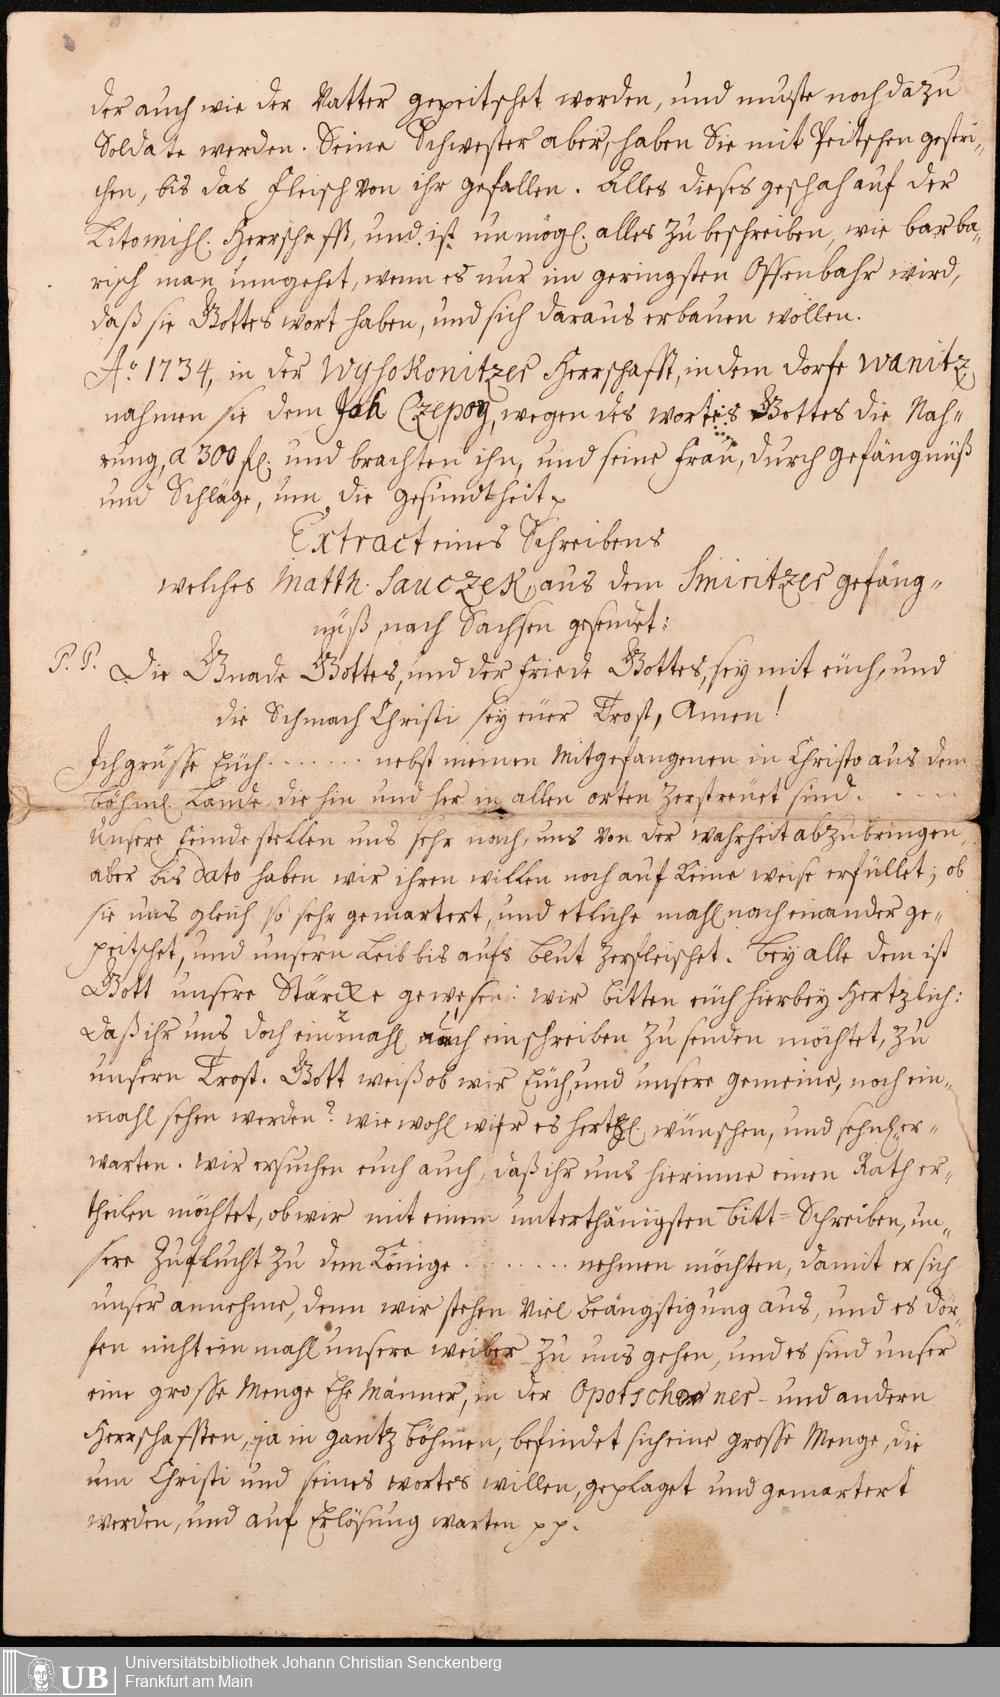 der auch wie der Vatter gepeitschet worden, und muste noch dazu
Soldate werden. Seine Schwester aber, haben Sie mit Peitschen gestri„
chen, bis das Fleisch von ihr gefallen. Alles dieses geschah auf der
Litomihl. Herrschafft, und ist unmögl. alles zu beschreiben, wie barba„
risch man umgehet, wenn es nur im geringsten Offenbahr wird,
daß sie Gottes wort haben, und sich daraus erbauen wollen.
Ao. 1734, in der Wysokonitzer Herrschafft, in dem dorfe Wanitz
nahmen sie dem Jak Czepoy, wegen des wortes Gottes die Nah„
rung, a 300 fl. und brachten ihn, und seine Frau, durch gefängnüß
und Schläge, um die gesundtheit p
Extract eines Schreibens
welches Matth. Sauczek, aus dem Smiritzer gefäng„
nüß, nach Sachsen gesendet:
P. P. Die Gnade Gottes, und der Friede Gottes, sey mit eüch, und
die Schmach Christi sey eüer Trost, Amen!
Ich grüsse Eüch . . . . . . . nebst meinen Mitgefangenen in Christo aus dem
böhml. Lande, die hin und her in allen orten zerstreüet sind. . . . .
Unsere Feinde stellen uns sehr nach, uns von der wahrheit abzubringen,
aber bis dato haben wir ihren willen noch auf keine weise erfüllet; ob
sie uns gleich so sehr gemartert, und etliche mahl nach einander ge„
peitschet, und unsern Leib bis aufs blut zerfleischet. Bey alle dem ist
Gott unsere Stärcke gewesen: wir bitten eüch hierbey Hertzlich:
Daß ihr uns doch einmahl auch ein schreiben zu senden möchtet, zu
unsern Trost. Gott weiß ob wir Eüch, und unsere gemeine, noch ein„
mahl sehen werden? wie wohl wir es hertzl. wünschen, und sehnl. er„
warten. Wir ersuchen euch auch, daß ihr uns hierinne einen Rath er„
theilen möchtet, ob wir mit einem unterthänigsten bitt=Schreiben, un„
sere Zuflucht zu dem Könige . . . . . . . nehmen möchten, damit er sich
unser annehme, denn wir stehen viel beängstigung aus, und es dör„
fen nicht einmahl unsere weiber zu uns gehen, und es sind unser
eine grosse Menge Ehe Männer, in der Opotschner- und andern
Herrschafften, ja in gantz böhmen, befindet sich eine grosse Menge, die
um Christi und seines wortes willen, geplaget und gemartert
werden, und auf Erlösung warten pp.
UB Universitätsbibliothek Johann Christian Senckenberg
Frankfurt am Main